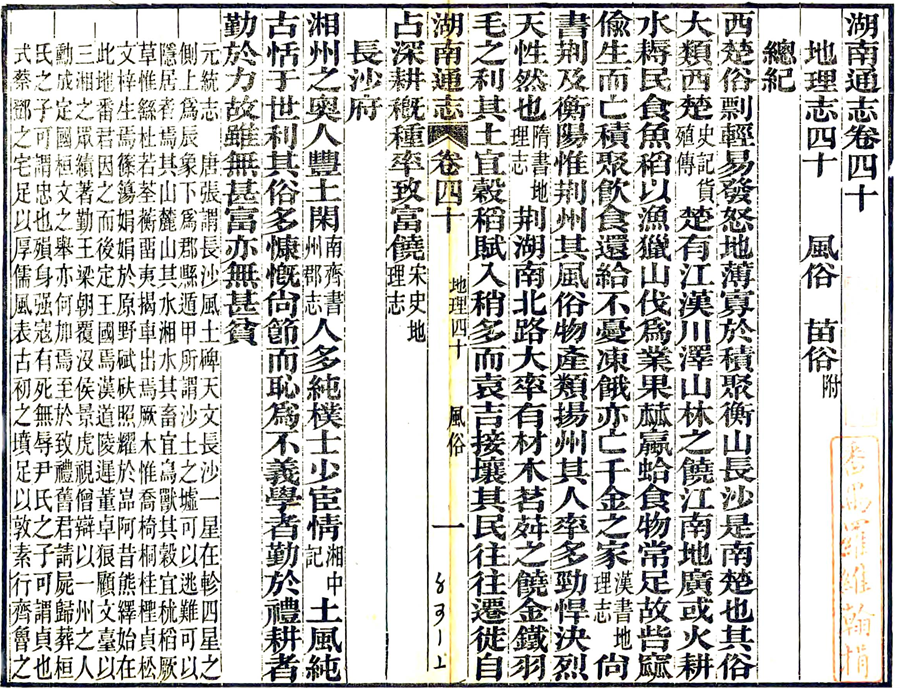 湖南通志卷四十
地理志四十　風俗　苗俗附
總紀
西楚俗剽輕易發怒地薄寡於積聚衡山長沙是南楚也其俗
大類西楚史記貨殖傳楚有江漢川澤山林之饒江南地廣或火耕
水耨民食魚稻以漁獵山伐爲業果蓏蠃蛤食物常足故呰窳
偸生而亡積聚飮食還給不憂凍餓亦亡千金之家漢書地理志尙
書荆及衡陽惟荆州其風俗物產類揚州其人率多勁悍決烈
天性然也隋書地理志荆湖南北路大率有材木茗荈之饒金鐵羽
毛之利其土宜穀稻賦入稍多而袁吉接壤其民往往遷徙自
湖南通志　卷四十　地理四十　風俗　一
占深耕槪種率致富饒宋史地理志
長沙府
湘州之奥人豐土閑南齊書州郡志人多純樸士少宦情湘中記土風純
古恬于世利其俗多慷慨尙節而恥爲不義學者勤於禮耕者
勤於力故雖無甚富亦無甚貧
元統志　唐張謂長沙風土碑天文長沙一星在軫四星之
側上爲辰象下爲郡縣遁甲所謂沙土之墟可以逃難可以
隱居者焉其山麓山其水湘水其畜宜鳥獸其穀宜秔稻厥
草惟繇杜若荃蘅畱夷揭車出焉厥木惟喬椅桐桂檉貞松
文梓生焉篠簜娟娟於原野碔砆照耀於崗阿昔熊繹始在
此地番君因之而後定王國焉漢道陵遲董卓狼顧文臺以
三湘之眾績著勤王梁朝覆沒侯景虎視僧辯以一州之人
勳成定國桓文之舉亦何加焉至於致禮舊君請屍歸葬桓
氏之子可謂忠也殞身强寇有死無辱尹氏之子可謂貞也
式蔡鄧之宅足以厚儒風表古初之墳足以敦素行齊魯之